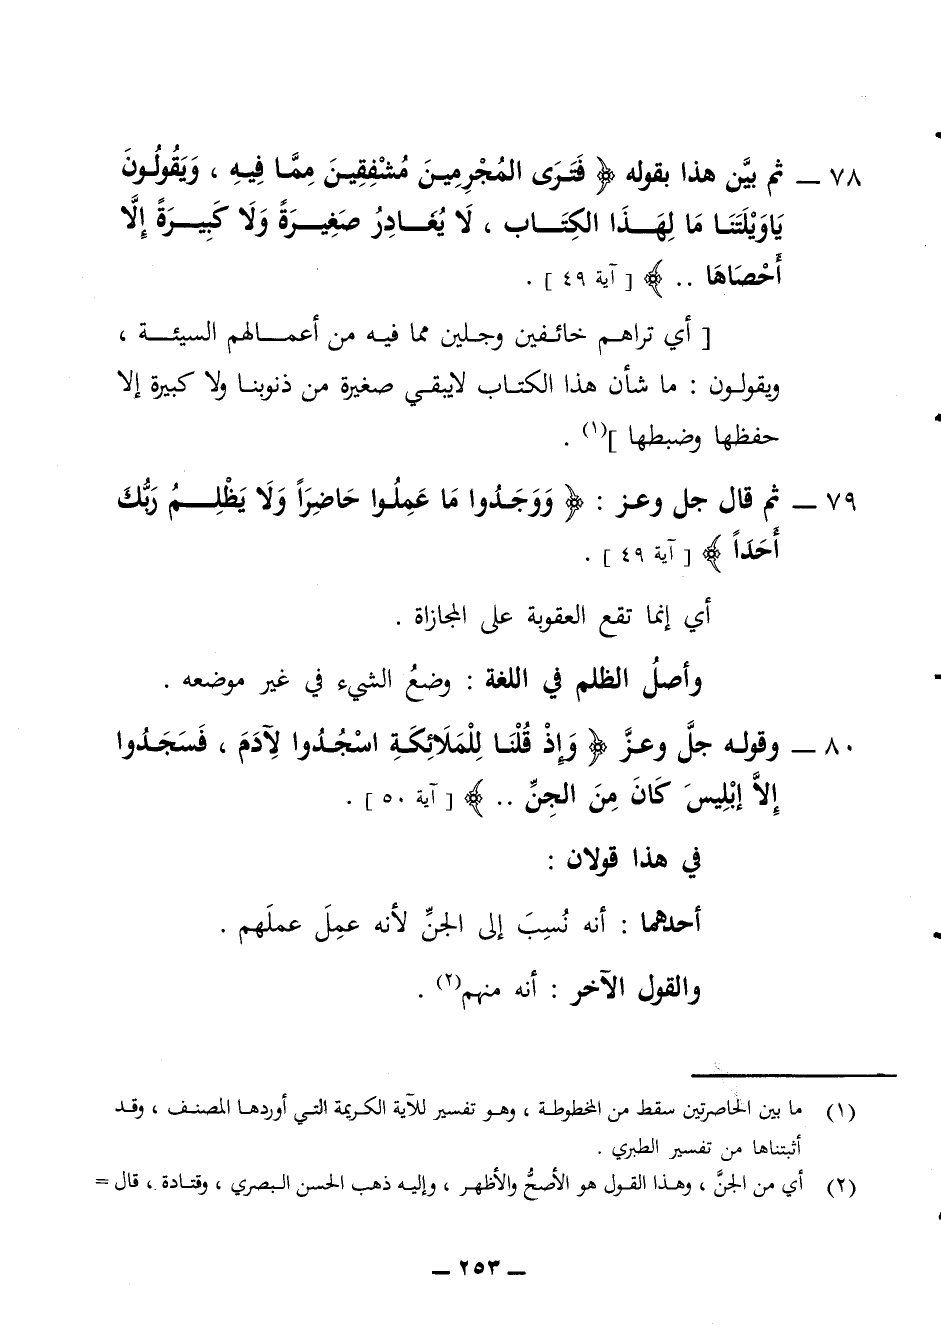 ٧٨ ــ ثم بيَّن هذا بقوله ﴿ فَتَرَى المُجْرِمِينَ مُشْفِقِينَ مِمَّا فِيهِ ، وَيَقُولُونَ
يَاوَيْلَتَنَا مَا لِهَذَا الكِتَابِ ، لَا يُغَادِرُ صَغِيرَةً وَلَا كَبِيرَةً إِلَّا
أَحْصَاهَا .. ﴾ [ آية ٤٩ ] .
[ أي تراهم خائفين وجلين مما فيه من أعمالهم السيئة ،
ويقولون : ما شأن هذا الكتاب لايبقي صغيرة من ذنوبنا ولا كبيرة إلا
حفظها وضبطها ](١) .
٧٩ ــ ثم قال جل وعز : ﴿ وَوَجَدُوا مَا عَمِلُوا حَاضِرَاً وَلَا يَظْلِمُ رَبُّكَ
أَحَدَاً ﴾ [ آية ٤٩ ] .
أي إنما تقع العقوبة على المجازاة .
وأصلُ الظلم في اللغة : وضعُ الشيء في غير موضعه .
٨٠ ــ وقوله جلَّ وعزَّ ﴿ وَإِذْ قُلْنَا لِلْمَلَائِكَةِ اسْجُدُوا لِآدَمَ ، فَسَجَدُوا
إِلاَّ إبْلِيسَ كَانَ مِنَ الجِنِّ .. ﴾ [ آية ٥٠ ] .
في هذا قولان :
أحدهما : أنه نُسِبَ إلى الجنِّ لأنه عمِلَ عملَهم .
والقول الآخر : أنه منهم(٢) .
(١) ما بين الحاصرتين سقط من المخطوطة ، وهو تفسير للآية الكريمة التي أوردها المصنف ، وقد
أثبتناها من تفسير الطبري .
(٢) أي من الجنَّ ، وهذا القول هو الأصحُّ والأظهر ، وإليه ذهب الحسن البصري ، وقتادة ، قال =
ــ ٢٥٣ ــ